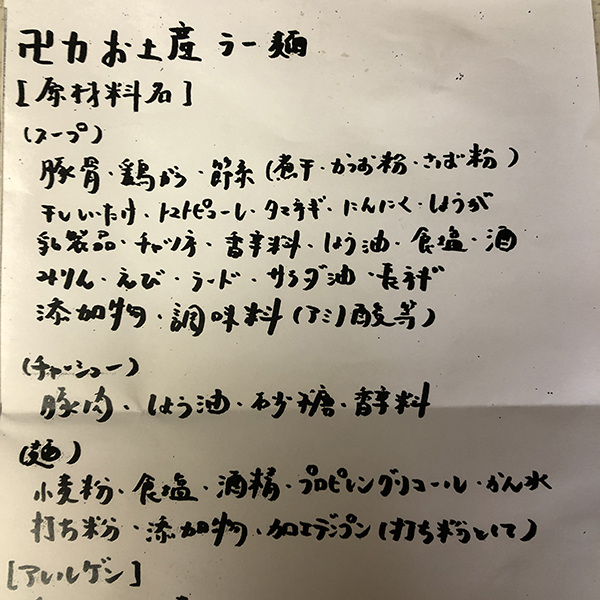 卍力お土産ラー麺
[原材料名]
(スープ)
豚骨・鶏がら・節系(煮干・かつお粉・さば粉)
干しいたけ・トマトピューレ・タマネギ・にんにく・しょうが
乳製品・チャツネ・香辛料・しょう油・食塩・酒
みりん・えび・ラード・サラダ油・長ネギ
添加物・調味料(アミノ酸等)
(チャーシュー)
豚肉・しょう油・砂糖・香辛料
(麺)
小麦粉・食塩・酒精・プロピレングリコール・かん水
打ち粉・添加物・加工デンプン(打ち粉として)
[アレルゲン]